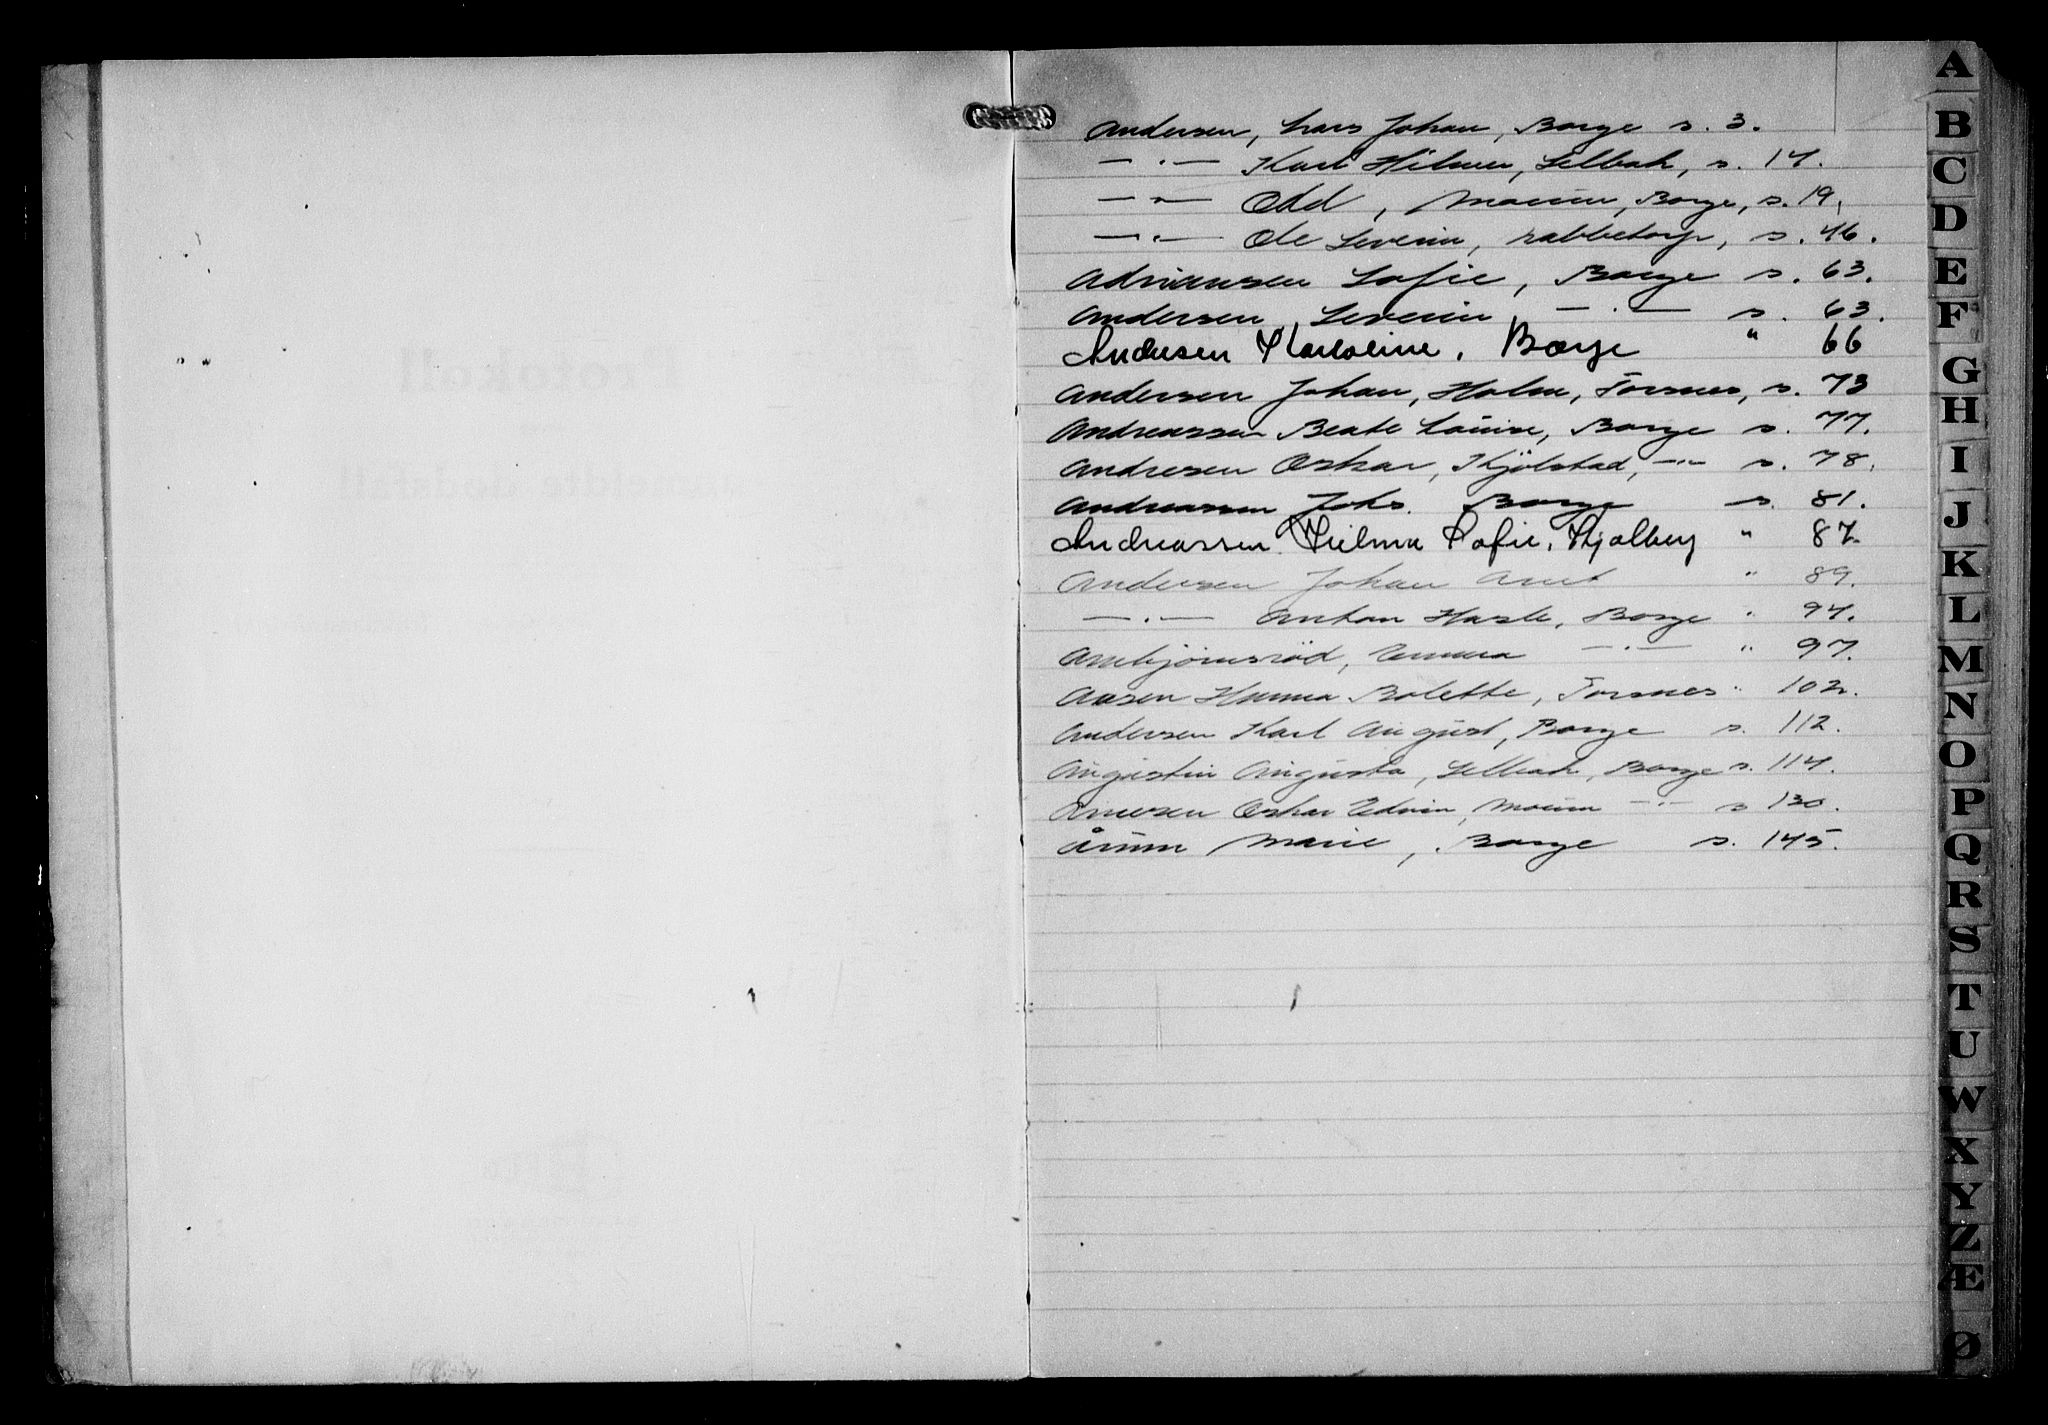 Andersen, Lars Johan, Borge s. 3.
— " — Karl Hilmer, Selbak, s. 14.
— " — Odd, Moum, Borge, s. 19.
— " — Ole Severin, Rabbetorp, s. 46.
Adriansen Sofie, Borge s. 63.
Andersen, Severin, — " — s. 63.
Andresen Karoline. Borge " 66
Andersen Johan, Holm, Torsnes, s. 73
Andreassen Beate Louise, Borge s. 77.
Andresen Oskar, Kjølstad, — " — s. 78.
Andreassen Johs. Borge s. 81.
Andreassen. Hilma Sofie. Kjølberg " 87.
Andersen Johan Arnt " 89.
— " — Anton Hasle, Borge " 94.
Arnbjørnsrød, Emma — " — " 97.
Aasen Hanna Bolette, Torsnes " 102.
Andersen Karl August, Borge s. 112.
Augustin Augusta, Selbak, Borge s. 114.
Oskar Edvin, Moum — " — s. 130.
Årum Marie, Borge s. 145.
A
B
C
D
E
F
G
H
I
J
K
L
M
N
O
P
Q
R
S
T
U
W
X
Y
Z
Æ
Ø